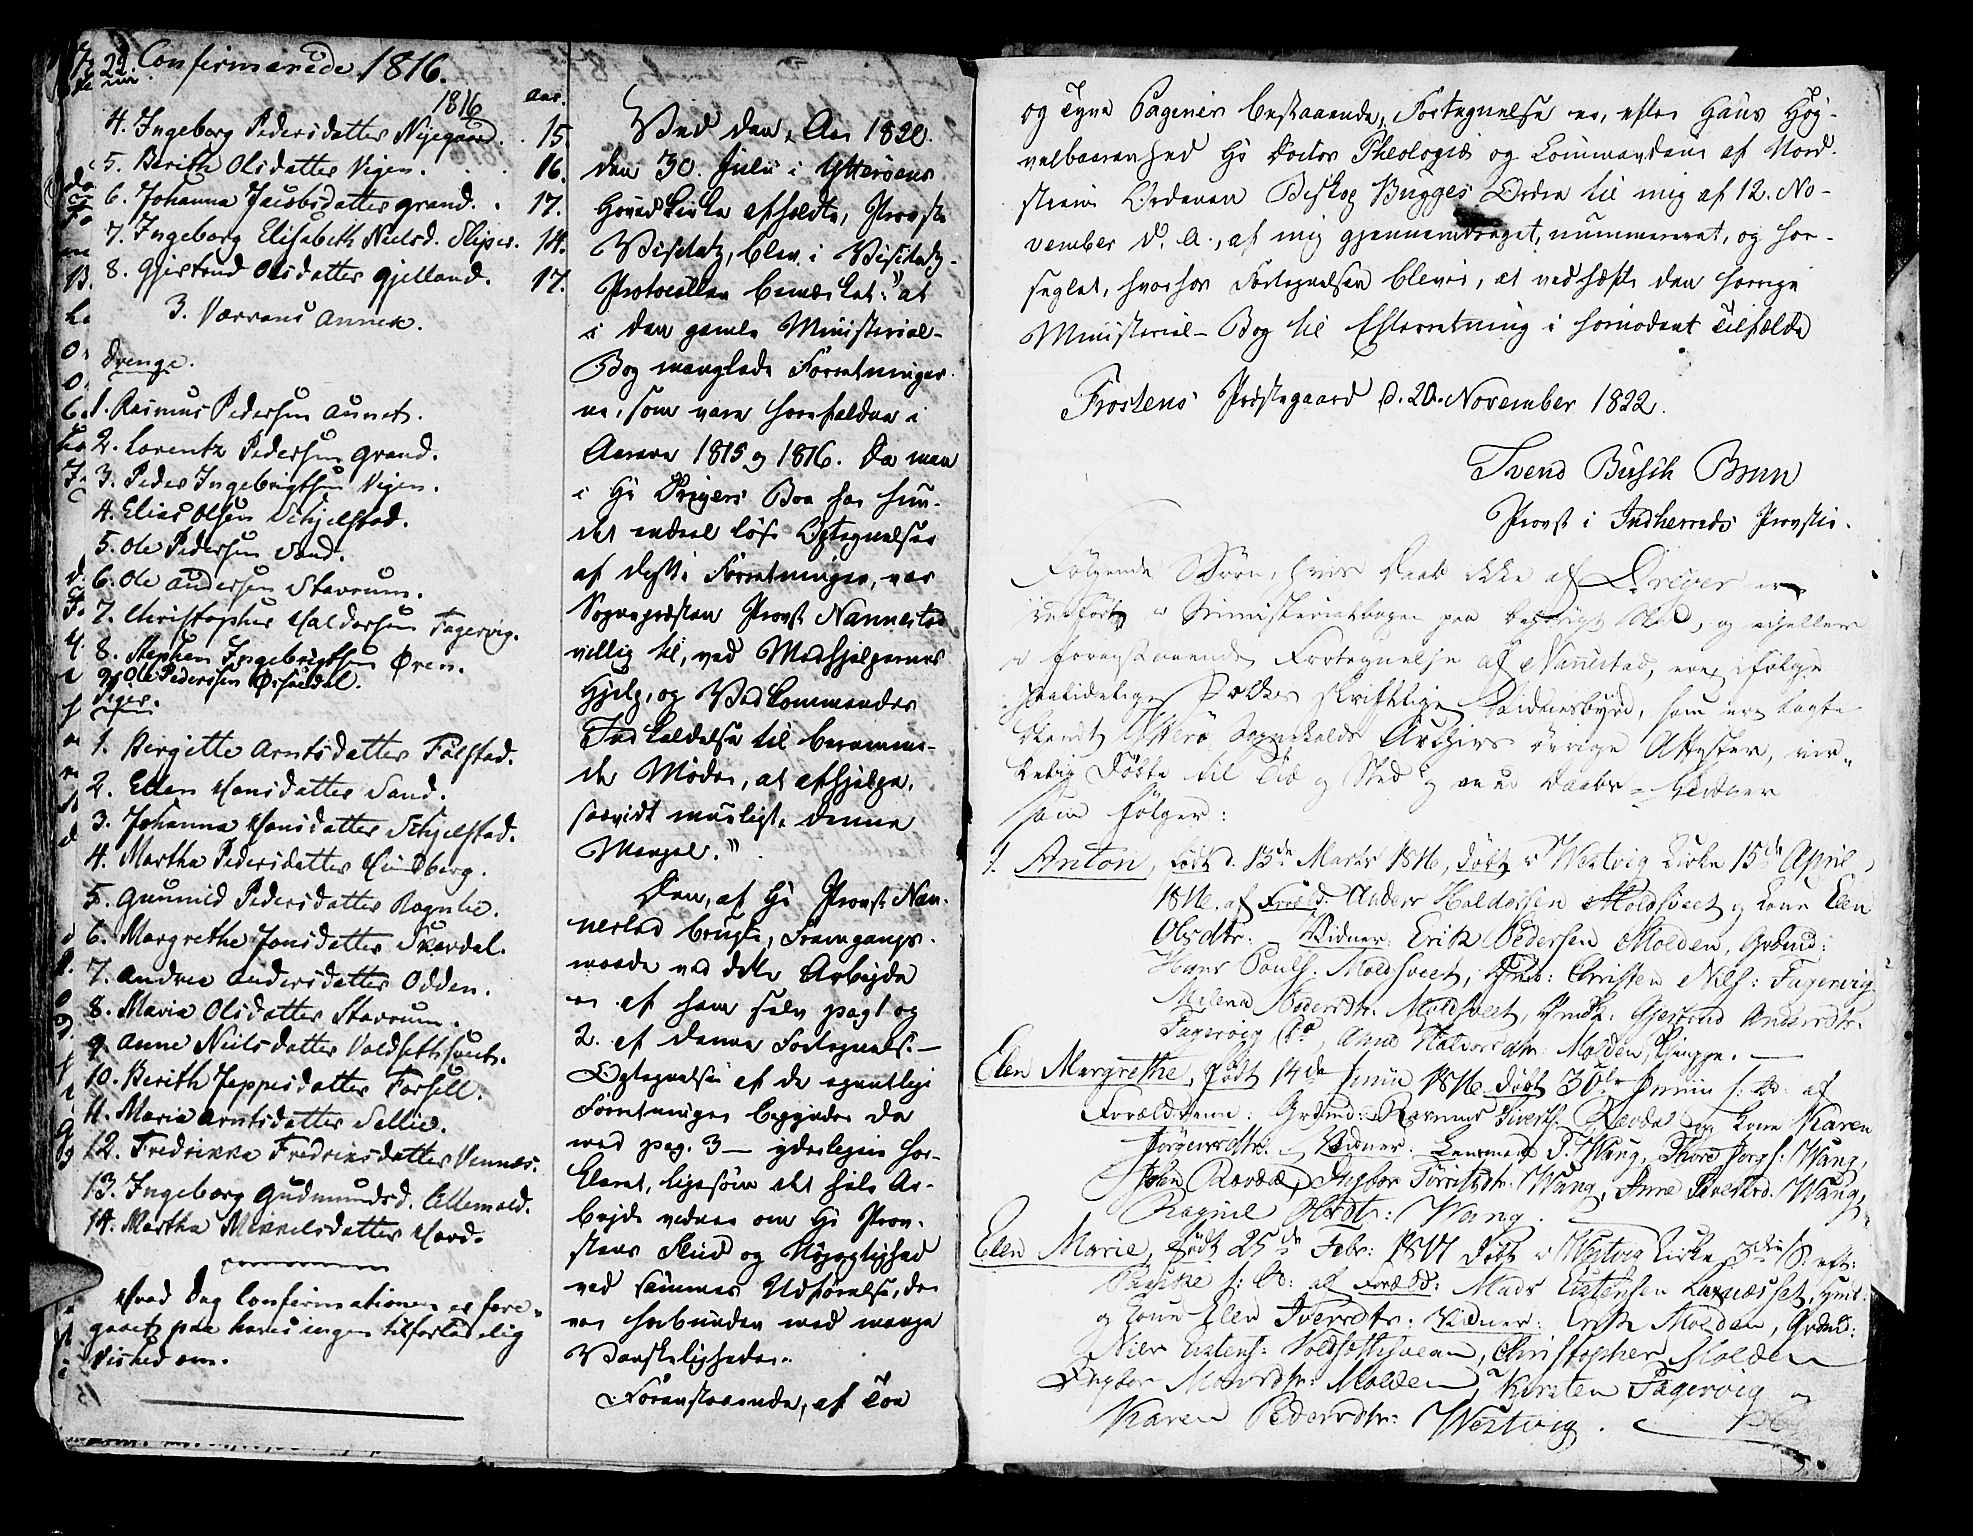 22. Confirmerede 1816.
1816
Aar.
4. Ingeborg Pedersdatter Nijegaard. . 15.
5. Berith Olsdatter Vigen. . . 16.
6. Johanna Jacobsdatter grand. . 17.
7. Ingeborg Elisabeth Nielsd. Slipér. 14.
8. Gjertrud Olsdatter gjelland. 17.
3. Værrans Annex.
Drenge.
1. Rasmus Pedersen Aunet.
2. Lorentz Pedersen grand.
3. Peder Ingebrigtsen Vigen.
4. Elias Olsen Schjelstad.
5. Ole Pedersen Sand.
6. Ole Andersen Stavrum.
7. Christopher Haldorsen Fagervig.
8. Stephen Ingebrigtsen Ören.
9. Ole Pedersen
Piger.
1. Birgitte Arntsdatter Falstad.
2. Ellen Hansdatter Sand.
3. Johanna Hansdatter Schjelstad.
4. Martha Pedersdatter Hindberg.
5. Gunnild Pedersdatter
6. Margrethe Jonsdatter Skavdal.
7. Andrea Andersdatter Odden.
8. Maria Olsdatter Stavrum.
9. Anne Nielsdatter
10. Berith Jeppesdatter Forsell.
11. Maria Arntsdatter Sellie.
12. Fredrikka Fredriksdatter Vennes.
13. Ingeborg Gudmundsd.
14. Martha Mikkelsdatter Hard.
Hvad Dag Confirmationen er fore-
gaaet paa haves ingen tilforladelig
Vished om.
Ved den, Aar 1822.
den 30. Julii i Ytterøens
Hovedkirke afholdte, Provste
Visitatz, blev i Visitatz-
Protocollen bemærket: "at
i den gamle Ministerial-
Bog manglede Forretninger
ne, som vare forefaldne i
Aarene 1815 og 1816. Da man
i Hr Dreyers Boe har fun-
det endeel løse Optegnelser
af disse Forretninger, var
Sognepræsten Provst Nannestad
villig til, ved Medhjelpernes
Hjelp, og Vedkommendes
Indkaldelse til beramme-
de Møder, at afhjelpe,
saavidt mueligt, denne
Mangel."
Den, af Hr Provst Nan-
nestad brugte, Fremgangs-
maade ved dette Arbejde
er af ham selv pag 1 og
2. af denne Fortegnelse -
Optegnelsen af de egentlige
Forretninger begynder da
med pag. 3 - yderligere for-
klaret, ligesom det hele Ar-
bejde vidner om Hr Prov-
stens Flid og Nøjagtighed
ved sammes Udførelse, der
var forbunden med mange
Vanskeligheder.
Foranstaaende, af Toe
og Tyve Paginér bestaaende, Fortegnelse er, efter Hans Høj-
velbaarenhed Hr Doctor Theologiæ og Commandeur af Nord-
stierne Ordenen Biskop Bugges Ordre til mig af 12. No-
vember d. A., af mig gjennemdraget, nummereret, og for-
seglet, hvorfor Fortegnelsen bliver, at vedhæfte den forrige
Ministerial-Bog til Efterretning i fornødent Tilfælde
Frostens Præstegaard d. 20. November 1822.
Svend Busch Brun
Provst i Indherreds Provstie.
Følgende Børn, hvis Daab ikke af Dreyer er
indført i Ministerialbogen paa behørigt Sted, og eiheller
i foranstaaende Fortegnelse af Nannestad, ere ifølge
paalidelige Folkes skriftlige Vidnesbyrd, som ere lagte
blandt Ytterø Sognekalds Archivs øvrige Attester, vir-
kelig døbte til Tid og Sted og med Daabs-Vidner
som følger:
1. Anton, født d. 13de Marts 1816, døbt i Westvig Kirke 15de April
1816. af Foræld: Anders Haldorsen Moldsveet og Kone Elen
Olsdtr. Vidner: Erik Pedersen Molden, Grdmd:
Hans Pouls: Moldsveet, Christen Nils: Fagervig
Milena Pedersdtr. Moldsveet, Gjertrud Andersdtr.
Fagervig, Anne Halvorsdtr: Molden,
Elen Margrethe, født 14de Junii 1816. døbt 30te Junii s: A: af
Forældrene: Grdmd: Rasmus Siverts: og Kone Karen
Jørgensdtr. Vidner: Lensmand P. Wang, Thore Jørgs: Wang,
John Ingbor Wang, Anne Wang,
Ragnil Olsdtr: Wang.
Elen Marie, født 25de Febr: 1817 døbt i Westvig Kirke 3die S: eft:
Paaske s: A: af Foræld: Mads Eistensen
og Kone Elen Iversdtr: Vidner: Erik Molden, Grdmd:
Nils Eistens: Christopher Molden
Ingbor Molden, Kirsten Fagervig og
Karen Pedersdtr: Westvig.